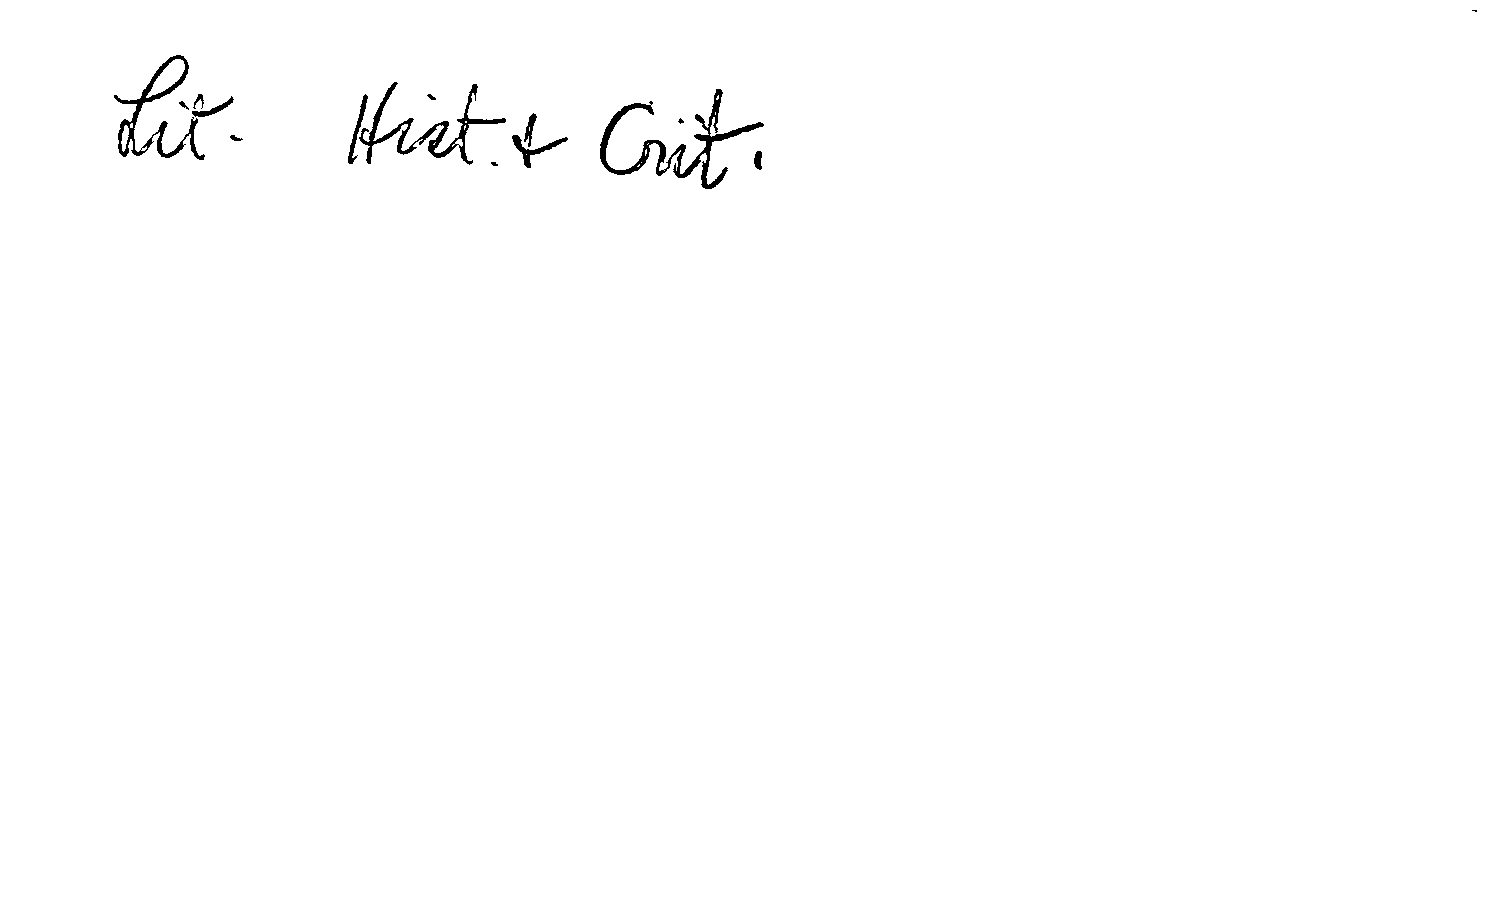 Lit. Hist. & Crit.